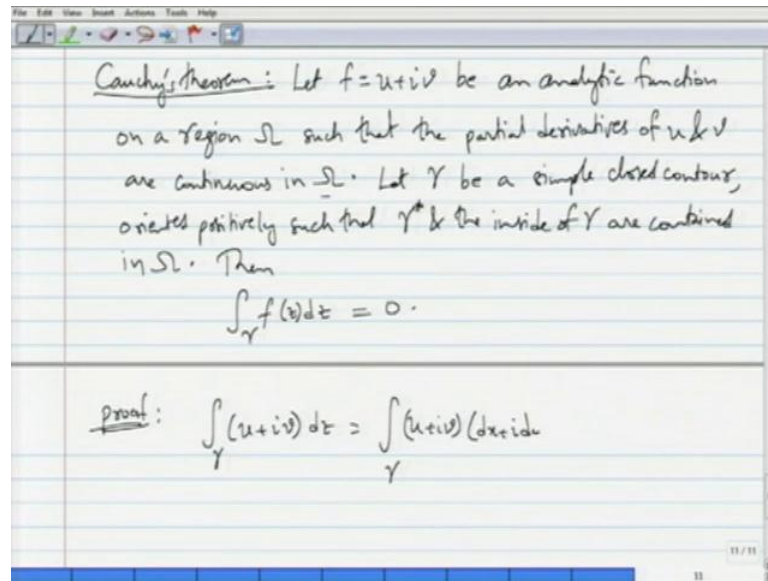 File Edit View Insert Actions Tools Help
Cauchy's theorem : Let f = u+iv be an analytic function
on a region Ω such that the partial derivatives of u & v
are continuous in Ω. Let γ be a simple closed contour,
oriented positively such that γ* & the inside of γ are contained
in Ω. Then
∫_γ f(z)dz = 0.
proof : ∫_γ (u+iv) dz = ∫_γ (u+iv) (dx+idy
11 / 11
11